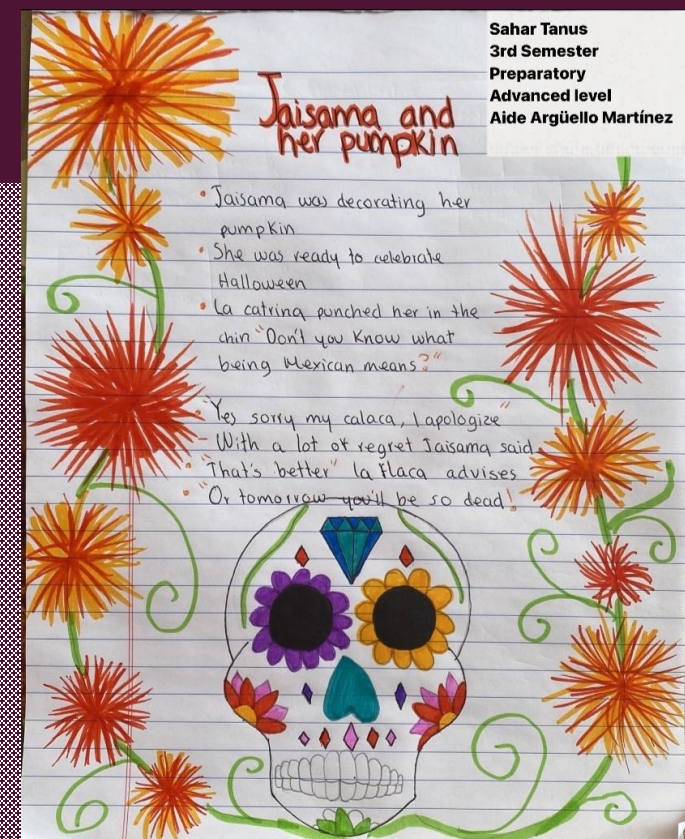 Sahar Tanus
3rd Semester
Preparatory
Advanced level
Aide Argüello Martínez
Jaisama and
her pumpkin
• Jaisama was decorating her
pumpkin
• She was ready to celebrate
Halloween
• La catrina punched her in the
chin "Don't you know what
being Mexican means?"
• "Yes sorry my calaca, I apologize"
• With a lot of regret Jaisama said
• "That's better" la flaca advises
• "Or tomorrow you'll be so dead!